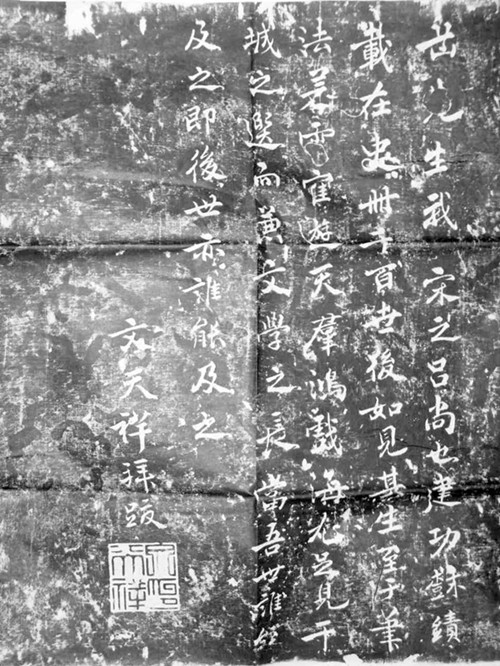 岳先生我 宋之呂尚也建功樹績
載在史冊千百世後如見其生至於筆
法若雲隺遊天羣鴻戲海尤足見干
城之選而兼文學之長當吾世誰能
及之即後世亦誰能及之
文天祥拜跋